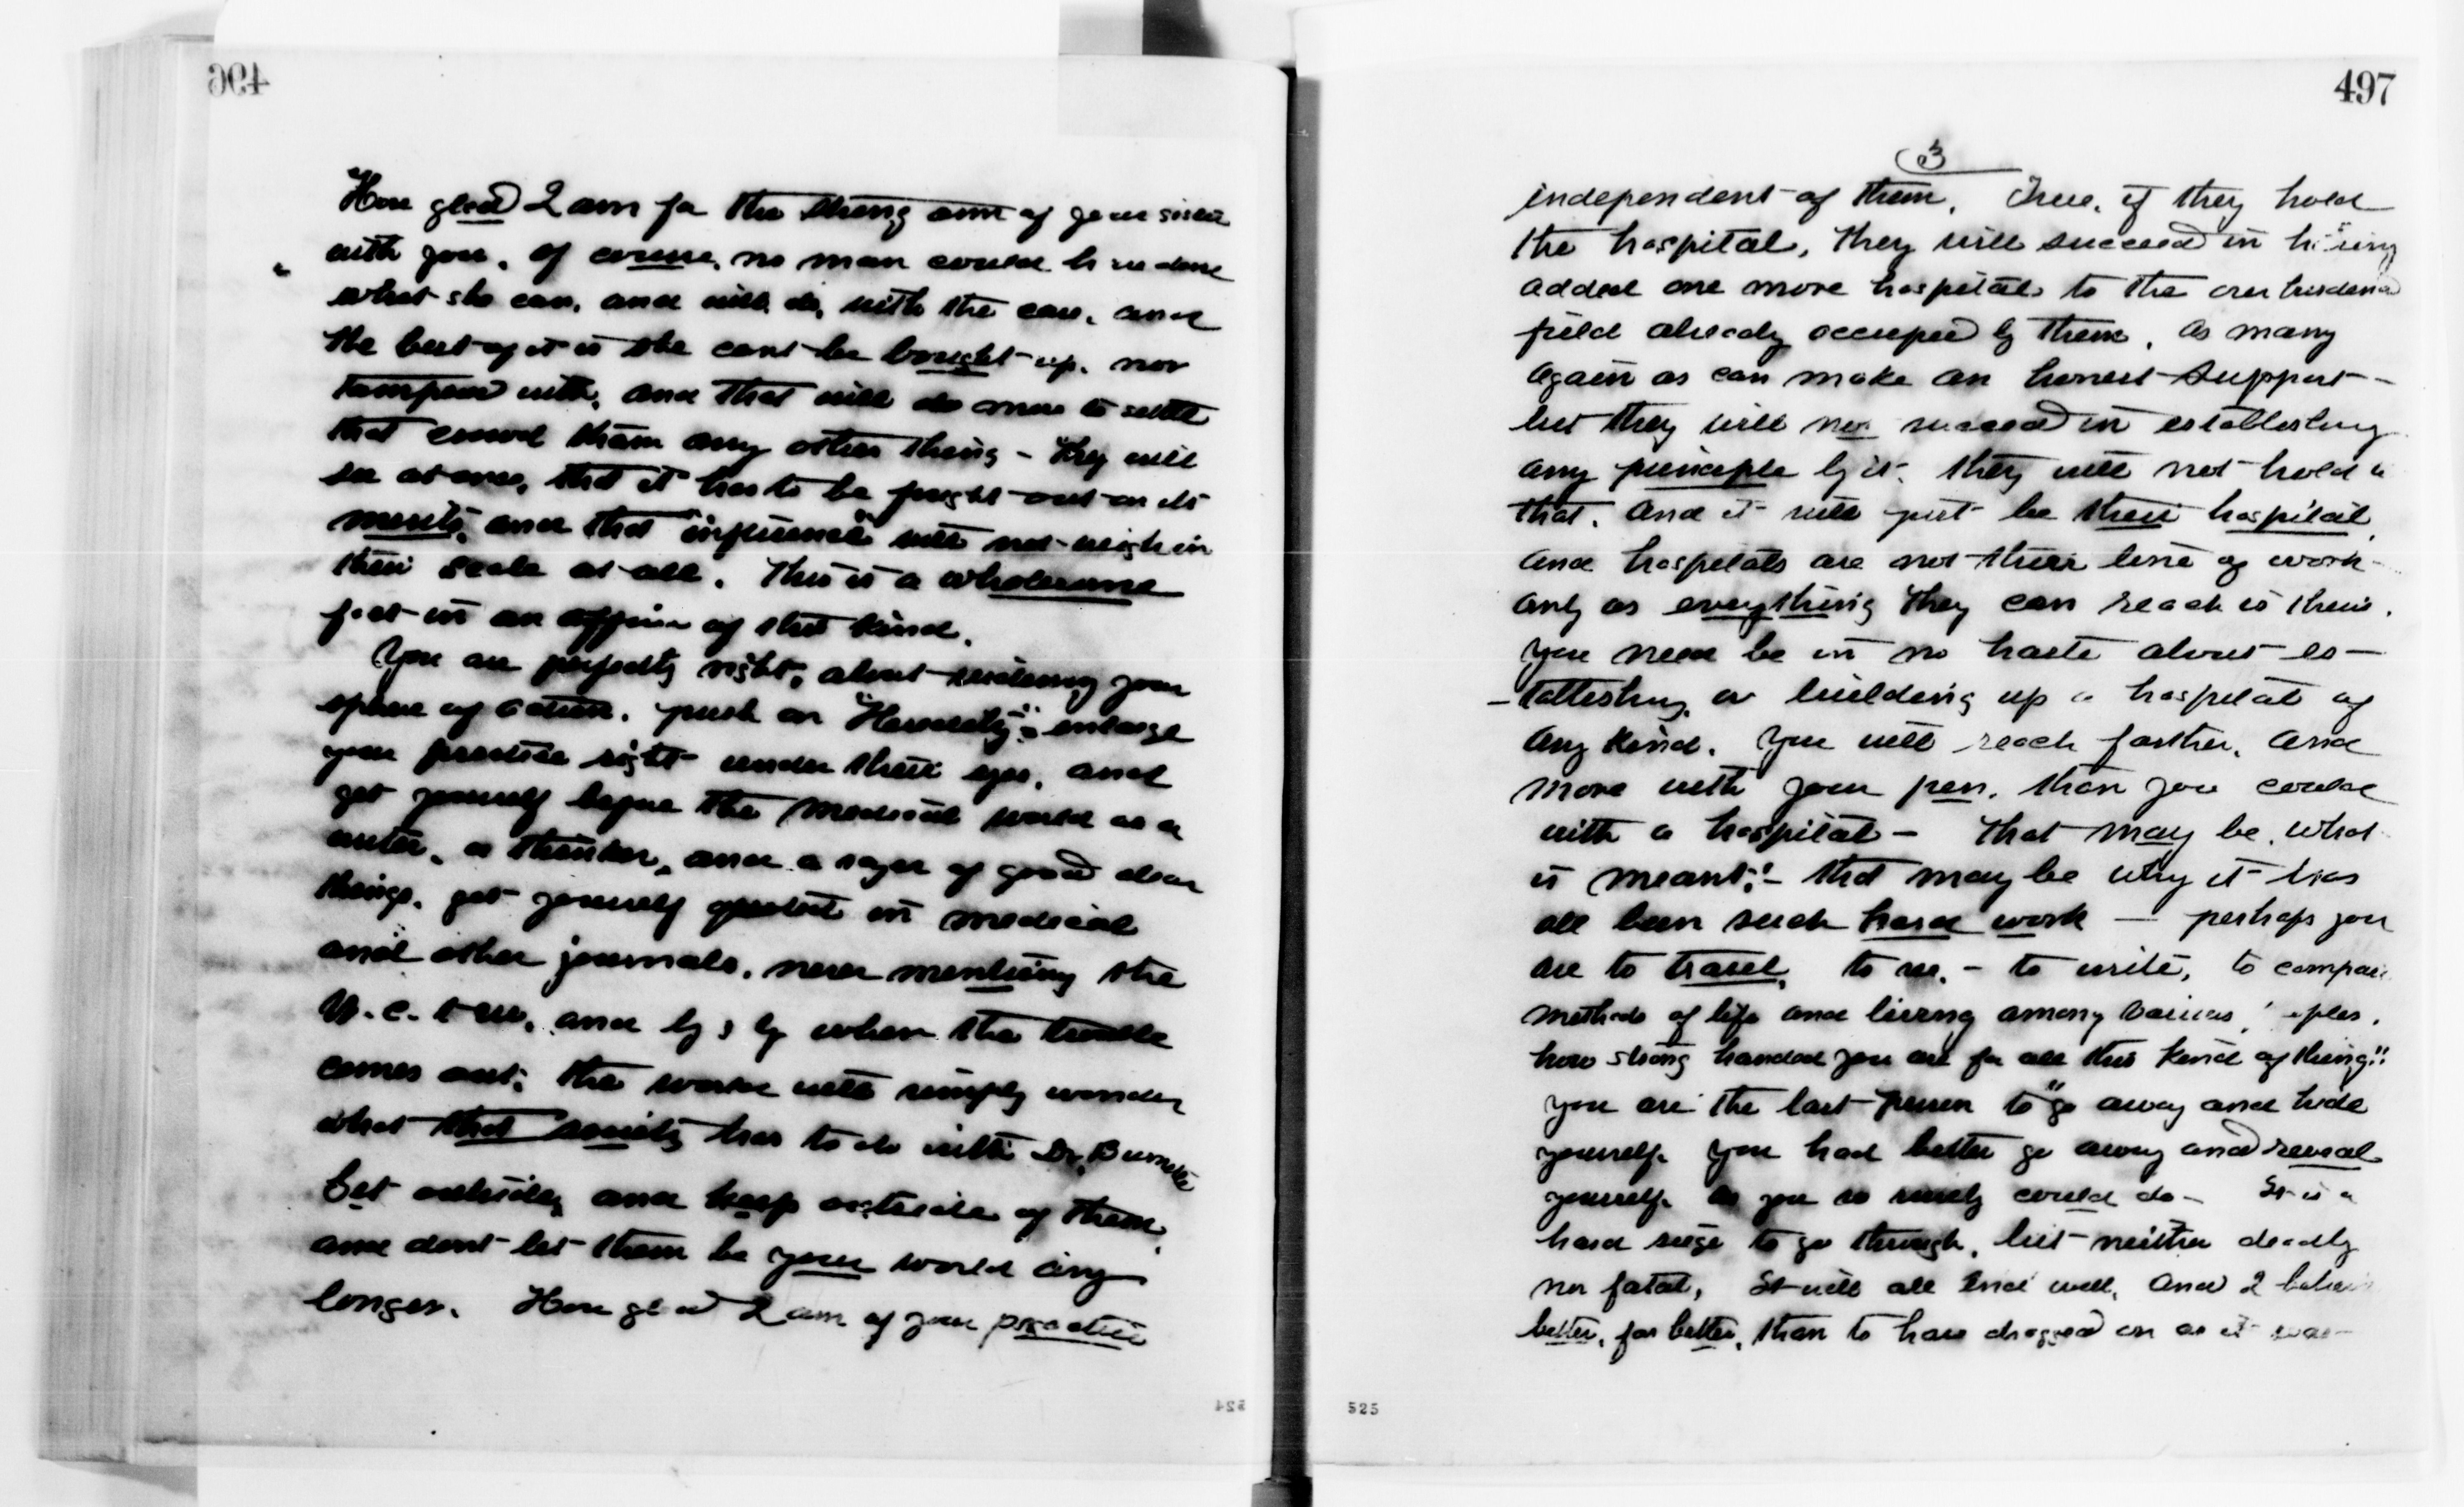 496
How glad I am for the strong arm of your sister
with you, of course, no man could have done
what she can, and will do, with the case, and
the best of it is she cant be bought up, nor
tampered with, and that will do more to settle
that crowd than any other thing - They will
see at once, that it has to be fought out on its
merits, and that "influence" will not weigh in
their scale at all. This is a wholesome
fact in an affair of that kind.
You are perfectly right, about widening your
sphere of action. push on "Heredity"; enlarge
your practice right under their eyes, and
get yourself before the medical world as a
writer, a thinker, and a sayer of good clear
things, get yourself quoted in medical
and other journals, never mentioning the
W.C.T.U., and by & by when the trouble
comes out, the world will simply wonder
what that society has to do with Dr. Burnett
Get outside, and keep outside of them,
and dont let them be your world any
longer. How glad I am of your practice
524
497
3
independent of them. True, if they hold
the hospital, they will succeed in having
added one more hospital to the over burdened
field already occupied by them, as many
again as can make an honest support -
but they will not succeed in establishing
any principle by it, they will not hold
that, and it will just be their hospital,
and hospitals are not their line of work -
only as everything they can reach is theirs.
You need be in no haste about es-
-tablishing, or building up a hospital of
any kind. You will reach farther, and
more with your pen, than you could
with a hospital - That may be, what
is meant! - that may be why it has
all been such hard work - perhaps you
are to travel, to see, - to write, to compare
methods of life and living among various
how strong handed you are for all this kind of thing!!
you are the last person to "go away and hide
yourself. You had better go away and reveal
yourself. as you so surely could do - It is a
hard siege to go through, but neither deadly
nor fatal, It will all end well, and I believe
better, far better, than to have dragged on as it was -
525